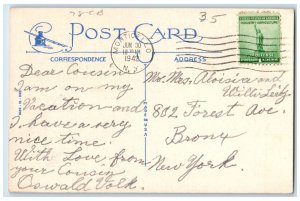 35
POST CARD
CORRESPONDENCE
ADDRESS
JUN 30
1942
N.Y.
Dear Cousin:
I am on my
Vacation and
I have a very
nice time.
With Love from
your Cousin
Oswald Volk.
Aloisia and
Willi Seitz
802 Forest Ave.
Bronx
New York.